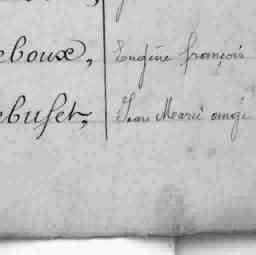 eboux, Eugène françois
ebufet, Jean Marie ange